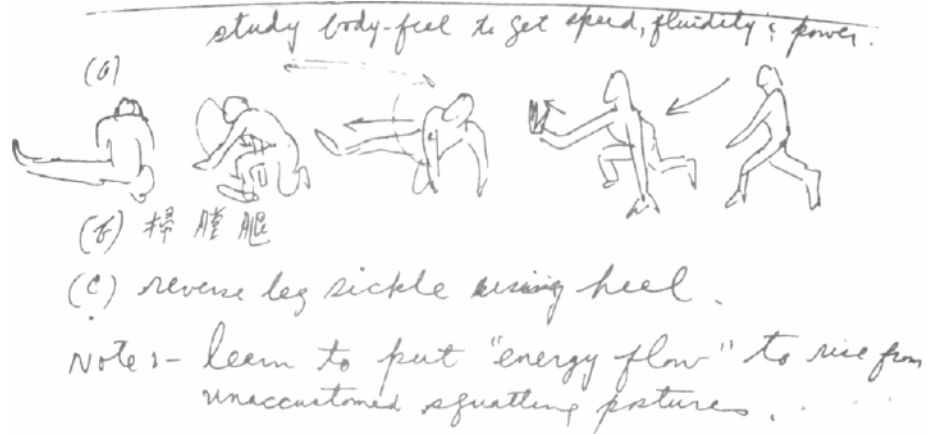 study body-feel to get speed, fluidity & power.
(a)
(b) 掃膛腿
(c) reverse leg sickle using heel.
Note:- learn to put "energy flow" to rise from
unaccustomed squatting postures.